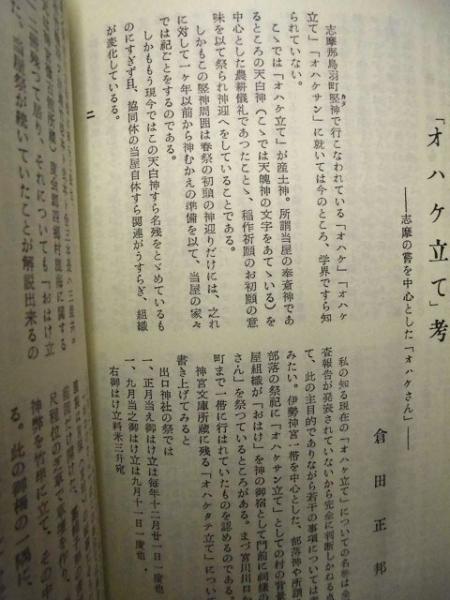 「オハケ立て」考
――志摩の嘗を中心とした「オハケさん」――
倉田正邦
志摩郡鳥羽町堅神で行こなわれている「オハケ」「オハケ
立て」「オハケサン」に就いては今のところ、学界ですら知
られていない。
こゝでは「オハケ立て」が産土神。所謂当屋の奉斎神であ
るところの天白神(こゝでは天魄神の文字をあてゝいる)を
中心とした農耕儀礼であつたことゝ、稲作祈願のお初願の意
味を以て祭られ神迎へをしていることである。
しかもこの堅神周囲は春祭の初頭の神迎りだけには、之れ
に対して一ヶ年以前から神むかえの準備を以て、当屋の家々
では祀ごとをするのである。
しかももう現今ではこの天白神すら名残をとゞめているも
のにすぎず且、協同休の当屋自休すら関連がうすらぎ、組織
が変化しているる。
二
私の知る現在の「オハケ立て」についての名称は全
査報告が発表されていないから完全に判断しかねるが
て、此の主目的でありながら若干の事項については
みたい。伊勢神宮一帯を中心とした、部落神や所謂
部落の祭祀に「オハケサン立て」としての村の背景
屋組織が「おはけ」を神の御宿として門前に祠様の
さん」を祭つているところがある。まづ宮川川口か
町まで一帯に行はれていたものを認めるのである。
神宮文庫所蔵に残る「オハケタテ立て」につい
書き上げてみると
出口神社の祭では
一、正月当え御はけ立は毎年十二月廿一日一度也
一、九月当之御はけ立は九月十一日一度也
右御はけ立料米三升宛
に残つて居り、それについても「おはけ立
、当屋祭が続いていたことが解説出来るの
尺程位の
神弊を一端に立て、その中
る。此の御種の一隅に、